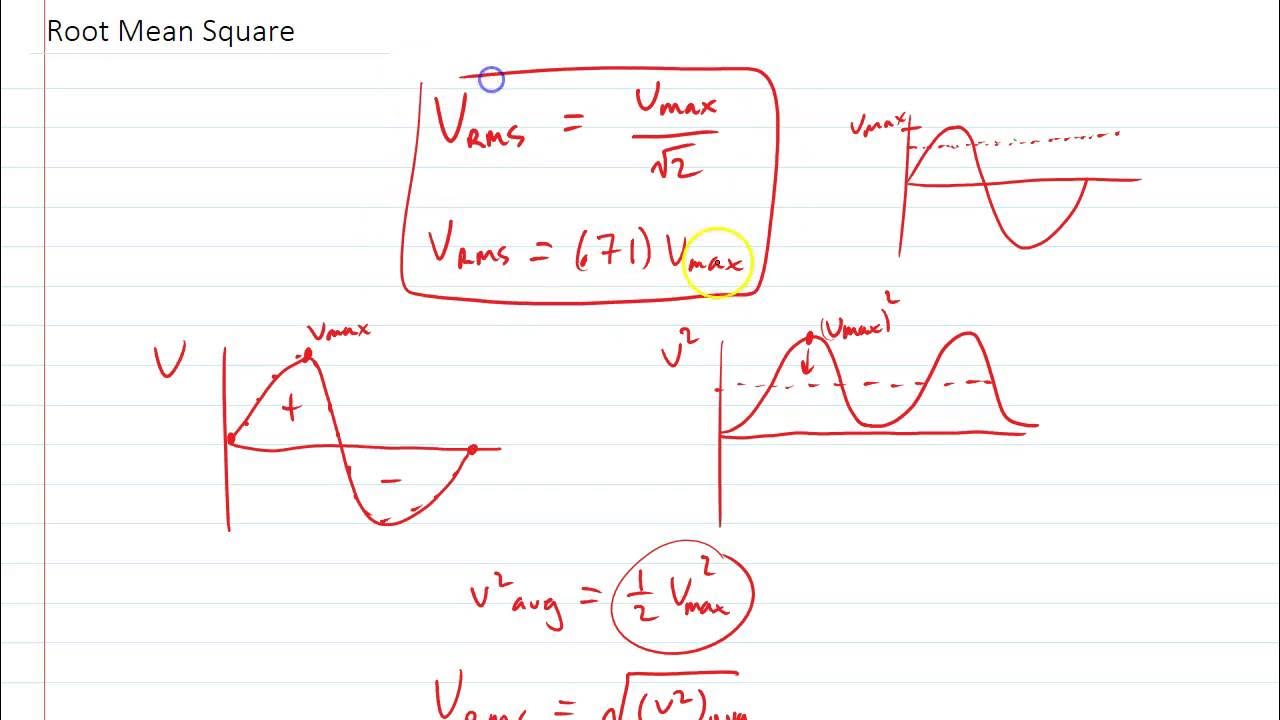 Root Mean Square
V_RMS = V_max / √2
V_max
V_RMS = (.71) V_max
V
V_max
+
−
V²
(V_max)²
V²avg = ½ V_max²
V_RMS = √(V²)avg